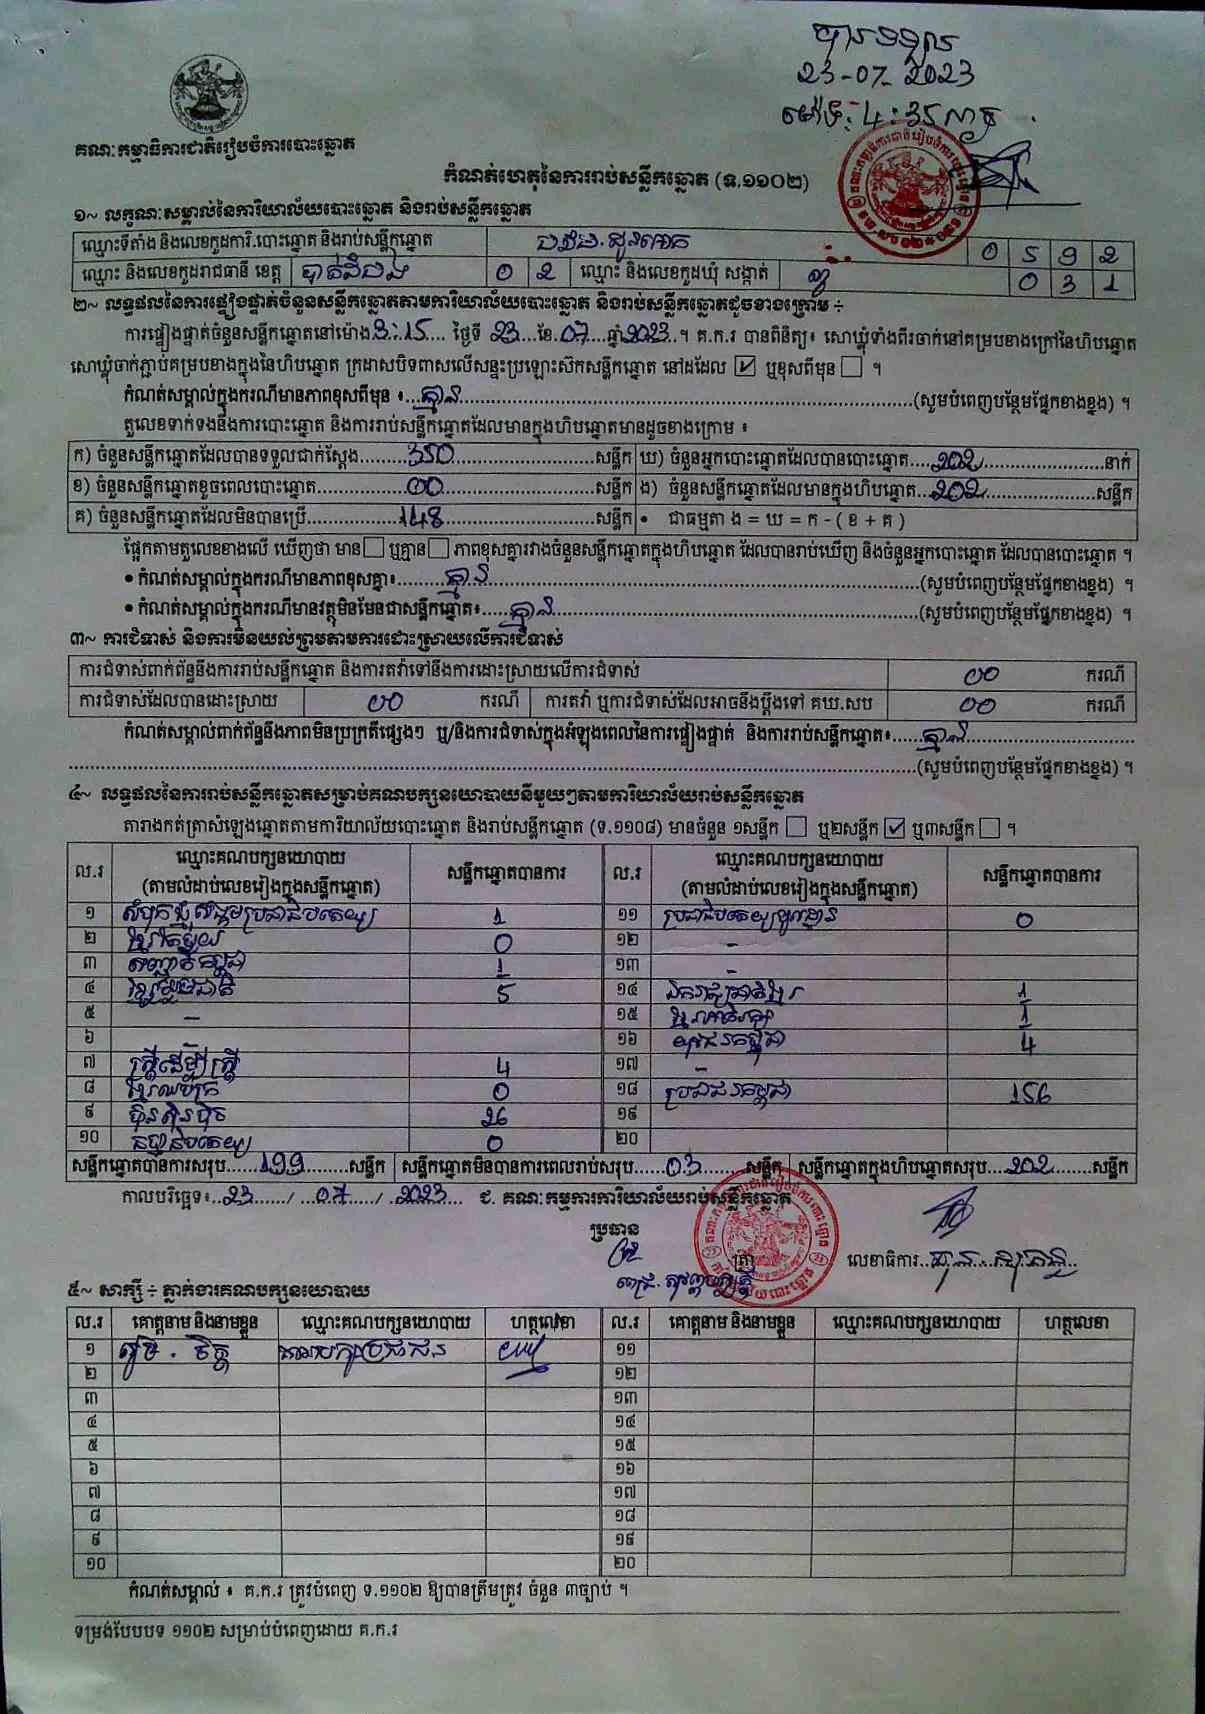 បានទទួល
23-07-2023
ម៉ោង: 4:35 ល្ងាច
គណៈកម្មាធិការជាតិរៀបចំការបោះឆ្នោត
កំណត់ហេតុនៃការរាប់សន្លឹកឆ្នោត (ទ.១១០២)
១~ លក្ខណៈសម្គាល់នៃការិយាល័យបោះឆ្នោត និងរាប់សន្លឹកឆ្នោត
ឈ្មោះទីតាំង និងលេខកូដការិ.បោះឆ្នោត និងរាប់សន្លឹកឆ្នោត 0 5 9 2
ឈ្មោះ និងលេខកូដរាជធានី ខេត្ត បាត់ដំបង 0 2 ឈ្មោះ និងលេខកូដឃុំ សង្កាត់ 0 3 1
២~ លទ្ធផលនៃការផ្ទៀងផ្ទាត់ចំនួនសន្លឹកឆ្នោតតាមការិយាល័យបោះឆ្នោត និងរាប់សន្លឹកឆ្នោតដូចខាងក្រោម ÷
ការផ្ទៀងផ្ទាត់ចំនួនសន្លឹកឆ្នោតនៅម៉ោង 3:15 ថ្ងៃទី 23 ខែ 07 ឆ្នាំ 2023 ។ គ.ក.រ បានពិនិត្យ៖ សោឃ្លុំទាំងពីរចាក់នៅគម្របខាងក្រៅនៃហិបឆ្នោត
សោឃ្លុំចាក់ភ្ជាប់គម្របខាងក្នុងនៃហិបឆ្នោត ក្រដាសបិទពាសលើសន្ទះប្រឡោះស៊កសន្លឹកឆ្នោត នៅដដែល ☑ ឬខុសពីមុន ☐ ។
កំណត់សម្គាល់ក្នុងករណីមានភាពខុសពីមុន ៖ គ្មាន (សូមបំពេញបន្ថែមផ្នែកខាងខ្នង) ។
តួលេខទាក់ទងនឹងការបោះឆ្នោត និងការរាប់សន្លឹកឆ្នោតដែលមានក្នុងហិបឆ្នោតមានដូចខាងក្រោម ៖
ក) ចំនួនសន្លឹកឆ្នោតដែលបានទទួលជាក់ស្តែង 350 សន្លឹក ឃ) ចំនួនអ្នកបោះឆ្នោតដែលបានបោះឆ្នោត 202 នាក់
ខ) ចំនួនសន្លឹកឆ្នោតខូចពេលបោះឆ្នោត 00 សន្លឹក ង) ចំនួនសន្លឹកឆ្នោតដែលមានក្នុងហិបឆ្នោត 202 សន្លឹក
គ) ចំនួនសន្លឹកឆ្នោតដែលមិនបានប្រើ 148 សន្លឹក • ជាធម្មតា ង = ឃ = ក - ( ខ + គ )
ផ្អែកតាមតួលេខខាងលើ ឃើញថា មាន ☐ ឬគ្មាន ☐ ភាពខុសគ្នារវាងចំនួនសន្លឹកឆ្នោតក្នុងហិបឆ្នោត ដែលបានរាប់ឃើញ និងចំនួនអ្នកបោះឆ្នោត ដែលបានបោះឆ្នោត ។
• កំណត់សម្គាល់ក្នុងករណីមានភាពខុសគ្នា៖ គ្មាន (សូមបំពេញបន្ថែមផ្នែកខាងខ្នង) ។
• កំណត់សម្គាល់ក្នុងករណីមានវត្ថុមិនមែនជាសន្លឹកឆ្នោត៖ គ្មាន (សូមបំពេញបន្ថែមផ្នែកខាងខ្នង) ។
៣~ ការជំទាស់ និងការមិនយល់ព្រមតាមការដោះស្រាយលើការជំទាស់
ការជំទាស់ពាក់ព័ន្ធនឹងការរាប់សន្លឹកឆ្នោត និងការតវ៉ាទៅនឹងការដោះស្រាយលើការជំទាស់ 00 ករណី
ការជំទាស់ដែលបានដោះស្រាយ 00 ករណី ការតវ៉ា ឬការជំទាស់ដែលអាចនឹងប្តឹងទៅ គឃ.សប 00 ករណី
កំណត់សម្គាល់ពាក់ព័ន្ធនឹងភាពមិនប្រក្រតីផ្សេងៗ ឬ/និងការជំទាស់ក្នុងអំឡុងពេលនៃការផ្ទៀងផ្ទាត់ និងការរាប់សន្លឹកឆ្នោត៖ គ្មាន
(សូមបំពេញបន្ថែមផ្នែកខាងខ្នង) ។
៤~ លទ្ធផលនៃការរាប់សន្លឹកឆ្នោតសម្រាប់គណបក្សនយោបាយនីមួយៗតាមការិយាល័យរាប់សន្លឹកឆ្នោត
តារាងកត់ត្រាសំឡេងឆ្នោតតាមការិយាល័យបោះឆ្នោត និងរាប់សន្លឹកឆ្នោត (ទ.១១០៨) មានចំនួន ១សន្លឹក ☐ ឬ២សន្លឹក ☑ ឬ៣សន្លឹក ☐ ។
ល.រ ឈ្មោះគណបក្សនយោបាយ (តាមលំដាប់លេខរៀងក្នុងសន្លឹកឆ្នោត) សន្លឹកឆ្នោតបានការ ល.រ ឈ្មោះគណបក្សនយោបាយ (តាមលំដាប់លេខរៀងក្នុងសន្លឹកឆ្នោត) សន្លឹកឆ្នោតបានការ
១ សំបុកឃ្មុំសង្គមប្រជាធិបតេយ្យ 1 ១១ ប្រជាធិបតេយ្យមូលដ្ឋាន 0
២ ខ្មែរតែមួយ 0 ១២ -
៣ សញ្ជាតិកម្ពុជា 1 ១៣ -
៤ ខ្មែររួបរួមជាតិ 5 ១៤ ឯកភាពជាតិខ្មែរ 1
៥ - ១៥ ខ្មែរអភិរក្ស 1
៦ - ១៦ យុវជនកម្ពុជា 4
៧ ស្ត្រីដើម្បីស្ត្រី 4 ១៧ -
៨ ខ្មែរឈប់ក្រ 0 ១៨ ប្រជាជនកម្ពុជា 156
៩ ហ៊្វុនស៊ិនប៉ិច 26 ១៩
១០ ធម្មាធិបតេយ្យ 0 ២០
សន្លឹកឆ្នោតបានការសរុប 199 សន្លឹក សន្លឹកឆ្នោតមិនបានការពេលរាប់សរុប 03 សន្លឹក សន្លឹកឆ្នោតក្នុងហិបឆ្នោតសរុប 202 សន្លឹក
កាលបរិច្ឆេទ៖ 23 / 07 / 2023 ជ. គណៈកម្មការការិយាល័យរាប់សន្លឹកឆ្នោត
ប្រធាន
ត្រា លេខាធិការ
៥~ សាក្សី ÷ ភ្នាក់ងារគណបក្សនយោបាយ
ល.រ គោត្តនាម និងនាមខ្លួន ឈ្មោះគណបក្សនយោបាយ ហត្ថលេខា ល.រ គោត្តនាម និងនាមខ្លួន ឈ្មោះគណបក្សនយោបាយ ហត្ថលេខា
១ ១១
២ ១២
៣ ១៣
៤ ១៤
៥ ១៥
៦ ១៦
៧ ១៧
៨ ១៨
៩ ១៩
១០ ២០
កំណត់សម្គាល់ ៖ គ.ក.រ ត្រូវបំពេញ ទ.១១០២ ឱ្យបានត្រឹមត្រូវ ចំនួន ៣ច្បាប់ ។
ទម្រង់បែបបទ ១១០២ សម្រាប់បំពេញដោយ គ.ក.រ